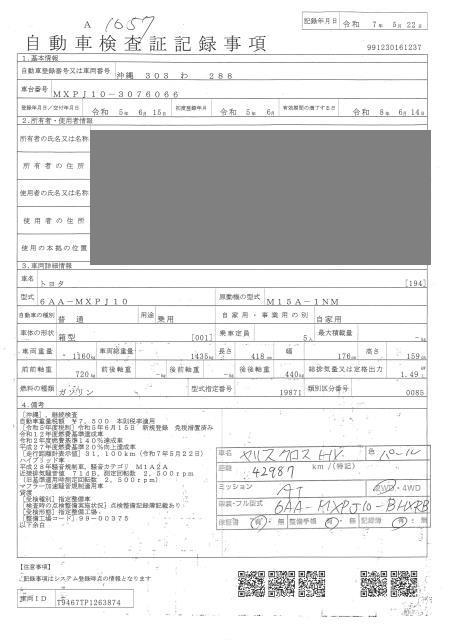 A 1657
記録年月日 令和 7年 5月 22日
自動車検査証記録事項
991230161237
1.基本情報
自動車登録番号又は車両番号 沖縄 303 わ 288
車台番号 MXPJ10-3076066
登録年月日/交付年月日 令和 5年 6月 15日 初度登録年月 令和 5年 6月 有効期間の満了する日 令和 8年 6月 14日
2.所有者・使用者情報
所有者の氏名又は名称
所有者の住所
使用者の氏名又は名称
使用者の住所
使用の本拠の位置
3.車両詳細情報
車名 トヨタ [194]
型式 6AA-MXPJ10 原動機の型式 M15A-1NM
自動車の種別 普通 用途 乗用 自家用・事業用の別 自家用
車体の形状 箱型 [001] 乗車定員 5人 最大積載量 -kg
車両重量 1160kg 車両総重量 1435kg 長さ 418cm 幅 176cm 高さ 159cm
前前軸重 720kg 前後軸重 -kg 後前軸重 -kg 後後軸重 440kg 総排気量又は定格出力 1.49L
燃料の種類 ガソリン 型式指定番号 19871 類別区分番号 0085
4.備考
[沖縄],継続検査
自動車重量税額 ¥7,500 本則税率適用
[令和5年度税制]令和5年6月15日 新規登録 免税措置済み
令和12年度燃費基準達成車
令和2年度燃費基準140%達成車
平成27年度燃費基準20%向上達成車
[走行距離計表示値] 31,100km (令和7年5月22日)
ハイブリッド車
平成28年騒音規制車、騒音カテゴリ M1A2A
近接排気騒音値 71dB、測定回転数 2,500rpm
(旧基準適用時測定回転数 2,500rpm)
マフラー加速騒音規制適用車
貸渡
[受検種別] 指定整備車
[検査時の点検整備実施状況] 点検整備記録簿記載あり
[受検形態] 指定整備工場
[整備工場コード] 99-00375
以下余白
車名 ヤリスクロス HV 色 パール
距離 42987 km / (特記)
ミッション AT 2WD・4WD
型式・フル型式 6AA-MXPJ10-BHXRB
保証書 有・無 整備手帳 有・無 記録簿 有・無
【注意事項】
記録事項はシステム登録時点の情報となります
車両ID T9467TP1263874